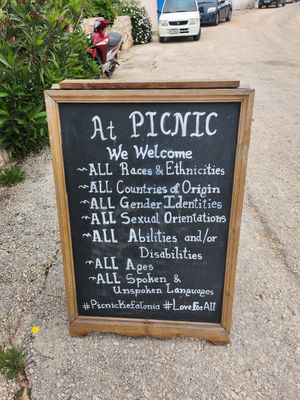 At PICNIC
We Welcome
~ALL Races & Ethnicities
~ALL Countries of Origin
~ALL Gender Identities
~ALL Sexual Orientations
~ALL Abilities and/or
Disabilities
~ALL Ages
~ALL Spoken &
Unspoken Languages
#PicnicKefalonia #LoveForAll